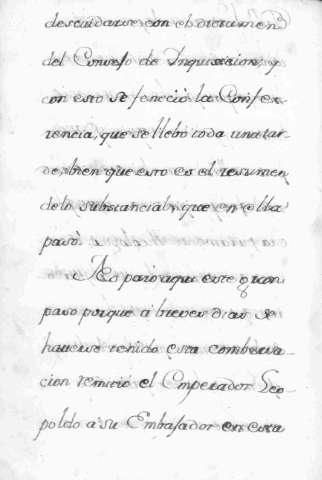 descuidarse con el dictamen
del Consejo de Inquisicion, y
con esto se feneciò la Confe-
rencia, que se llebò toda una tar-
de, bien que esto es el resumen
delo substancial, que en ella
pasò.
No parò aqui este gran
paso porque à breves dias de
haverse tenido esta combersa-
cion remitiò el Emperador Leo-
poldo à su Embasador en esta